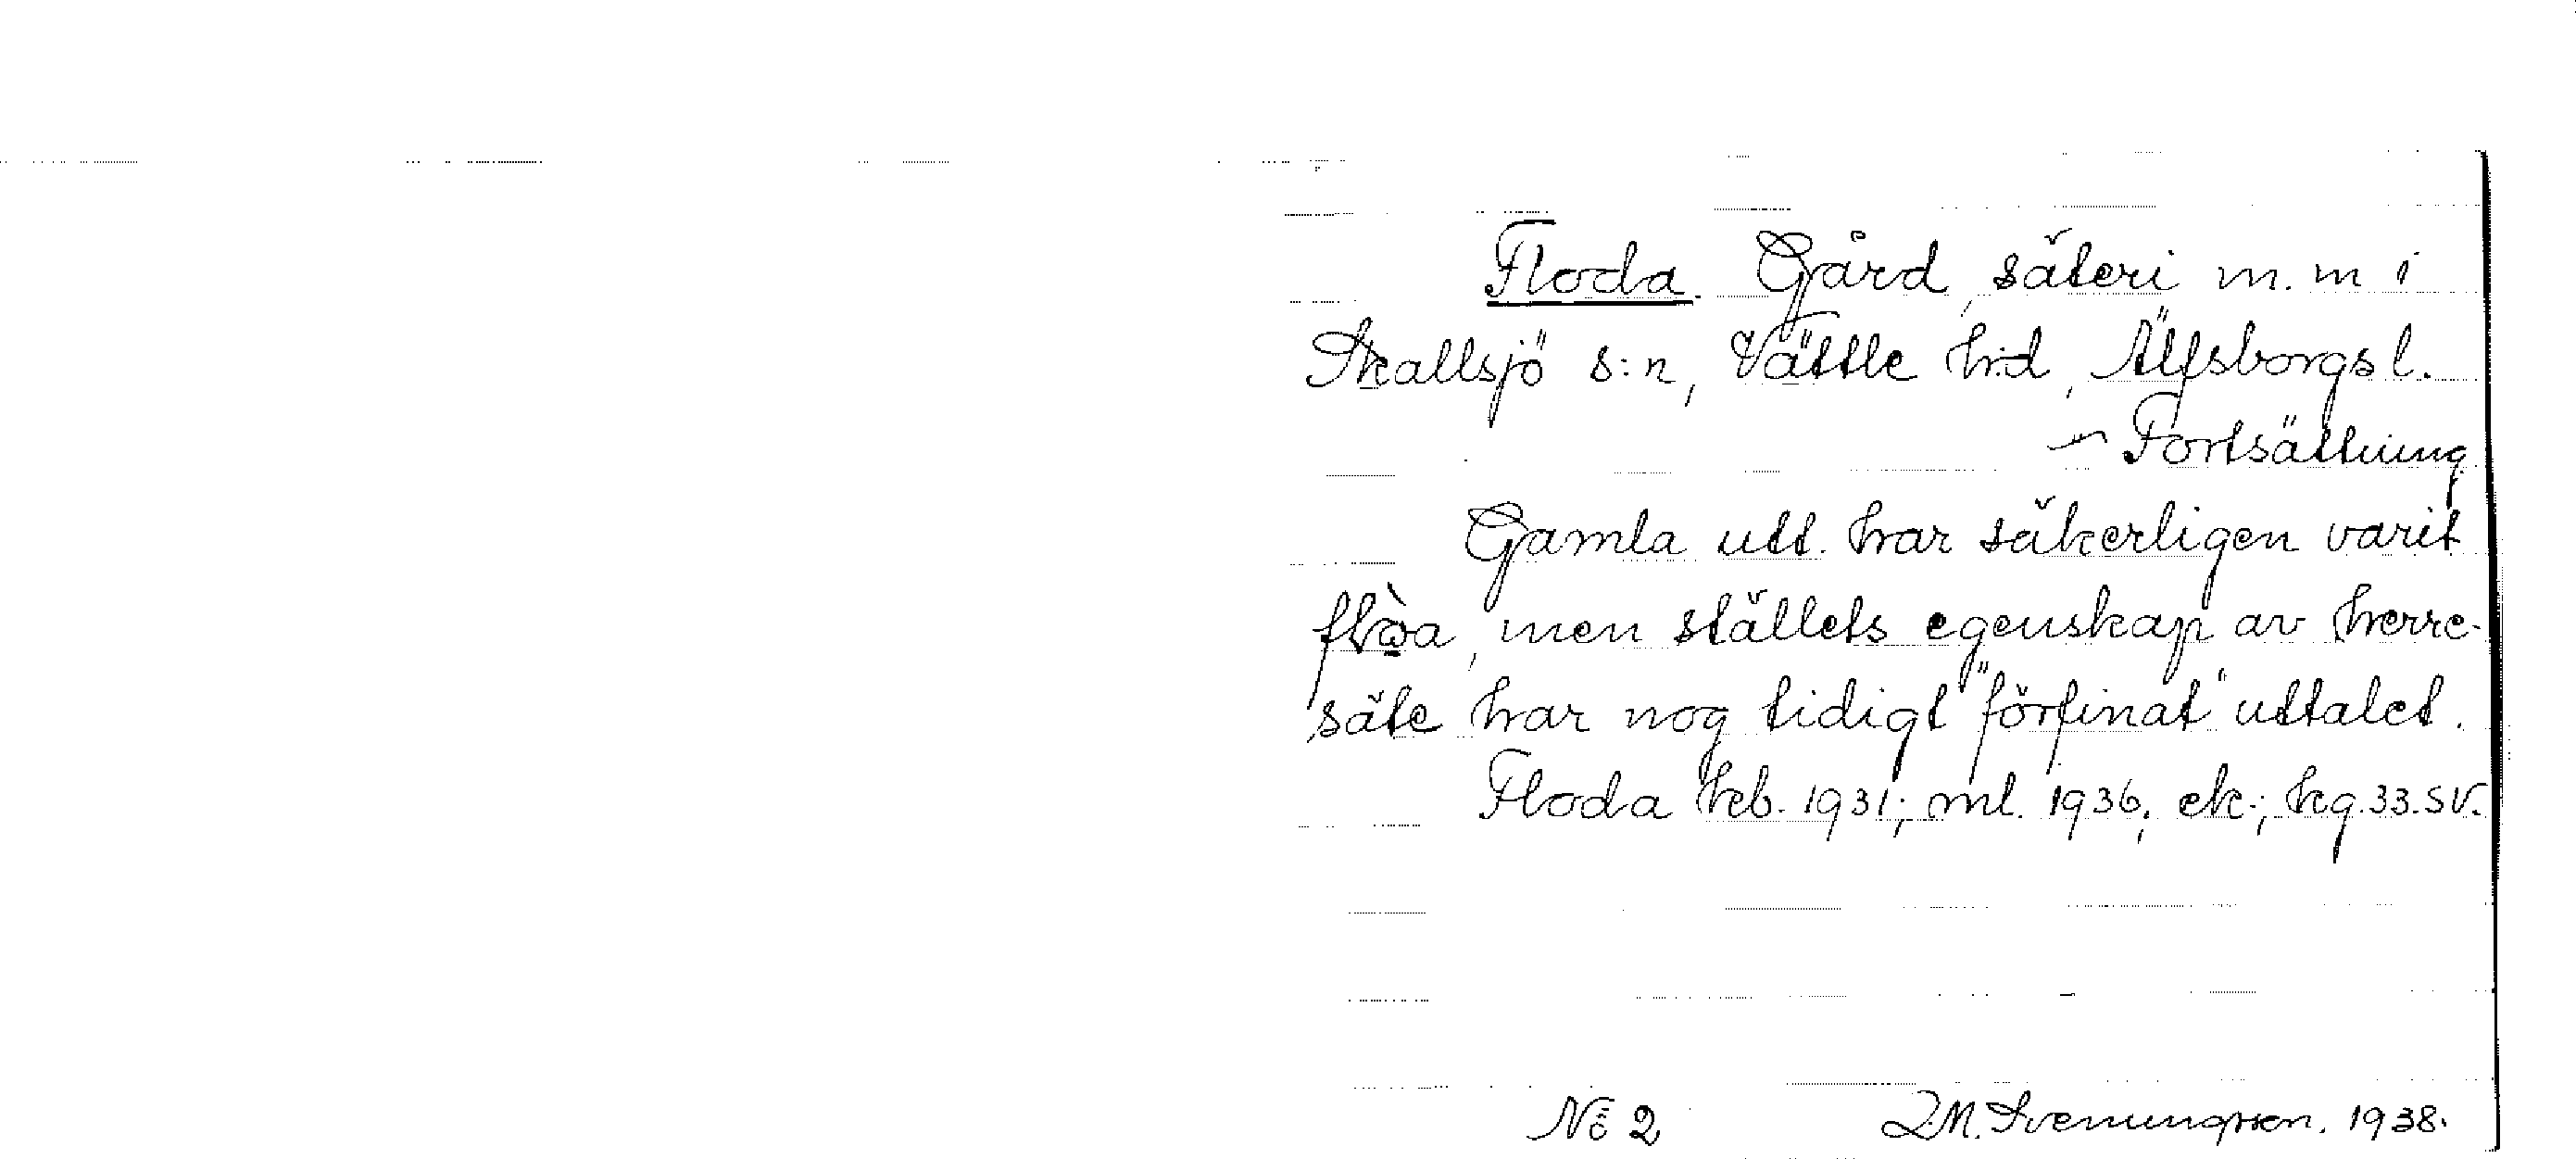 Floda. Gård, säteri m. m i
Skallsjö s:n, Vättle h:d, Älfsborgs l.
– Fortsättning
Gamla utt. har säkerligen varit
flὼa, men ställets egenskap av herre-
säte har nog tidigt "förfinat" uttalet.
Floda keb. 1931; ml. 1936; ek.; kg. 33. SV.
No 2 J.M. Svenungsson. 1938.